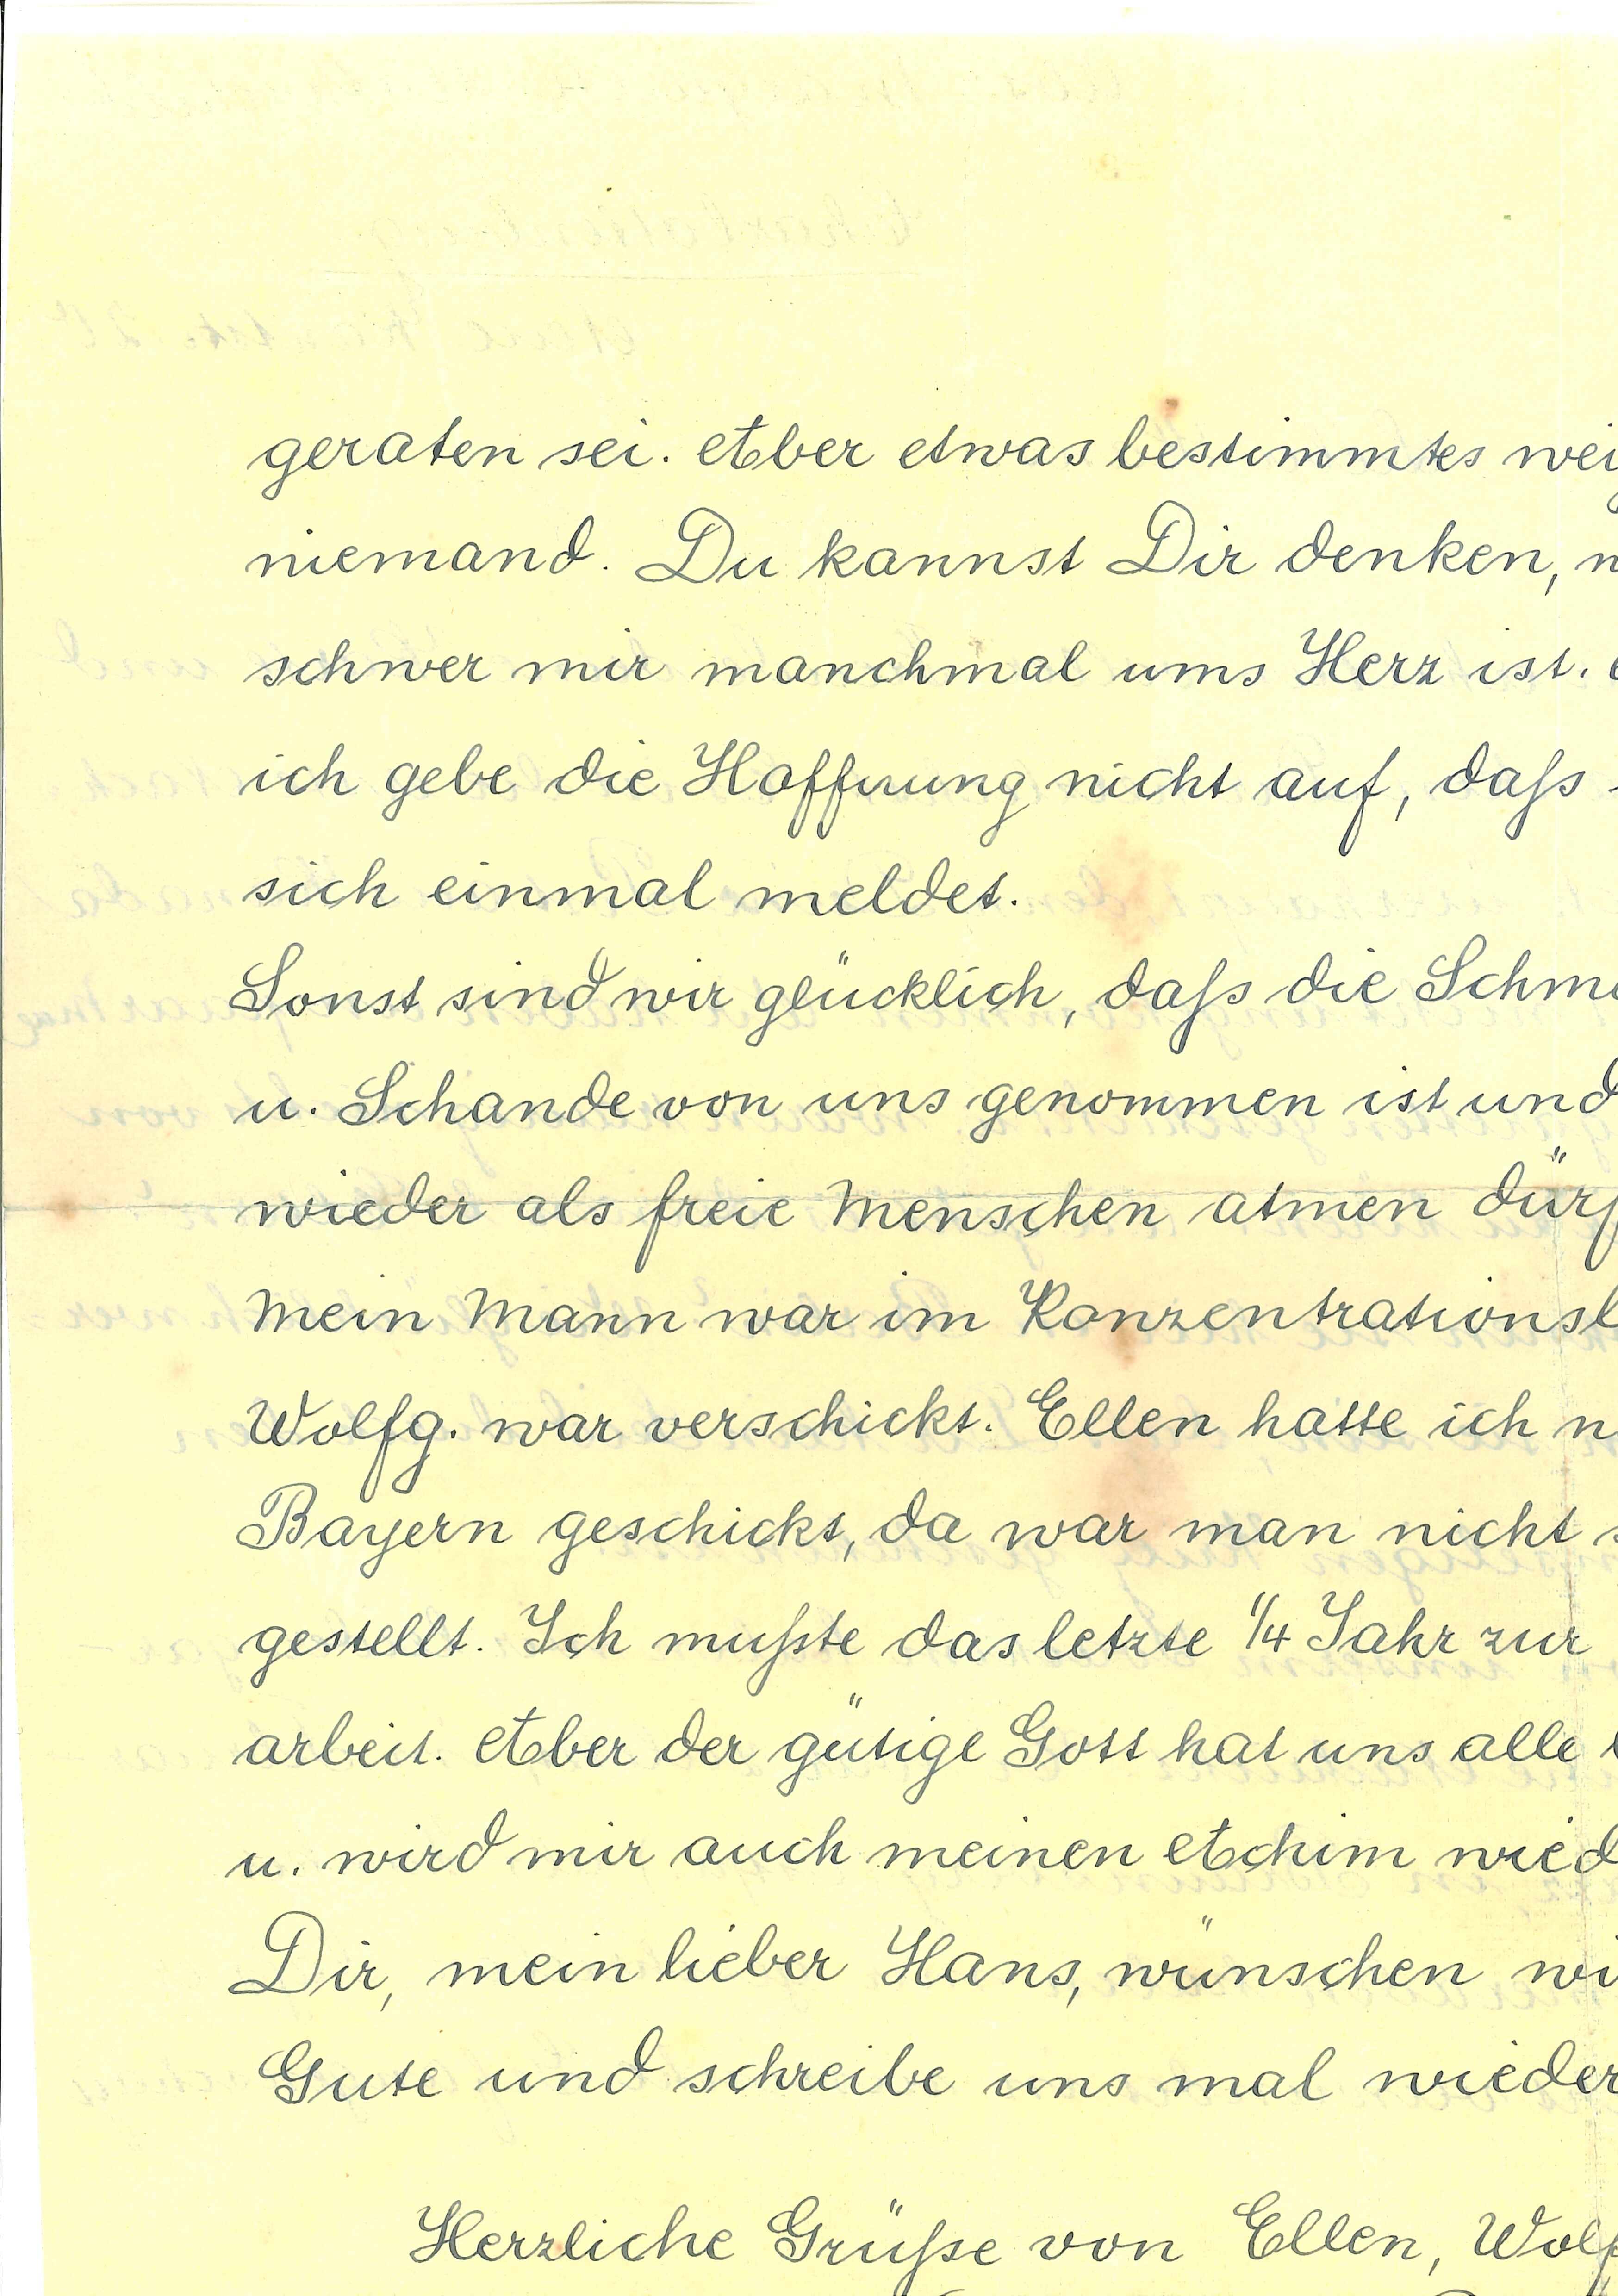 geraten sei. Aber etwas bestimmtes
niemand. Du kannst Dir denken,
schwer mir manchmal ums Herz ist.
ich gebe die Hoffnung nicht auf, daß
sich einmal meldet.
Sonst sind wir glücklich, daß die
u. Schande von uns genommen ist und
wieder als freie Menschen atmen
Mein Mann war im
Wolfg. war verschickt. Ellen hatte ich
Bayern geschickt, da war man nicht
gestellt. Ich mußte das letzte 1/4 Jahr zur
arbeit. Aber der gütige Gott hat uns alle
u. wird mir auch meinen Achim
Dir, mein lieber Hans, wünschen
Gute und schreibe uns mal wieder
Herzliche Grüße von Ellen,